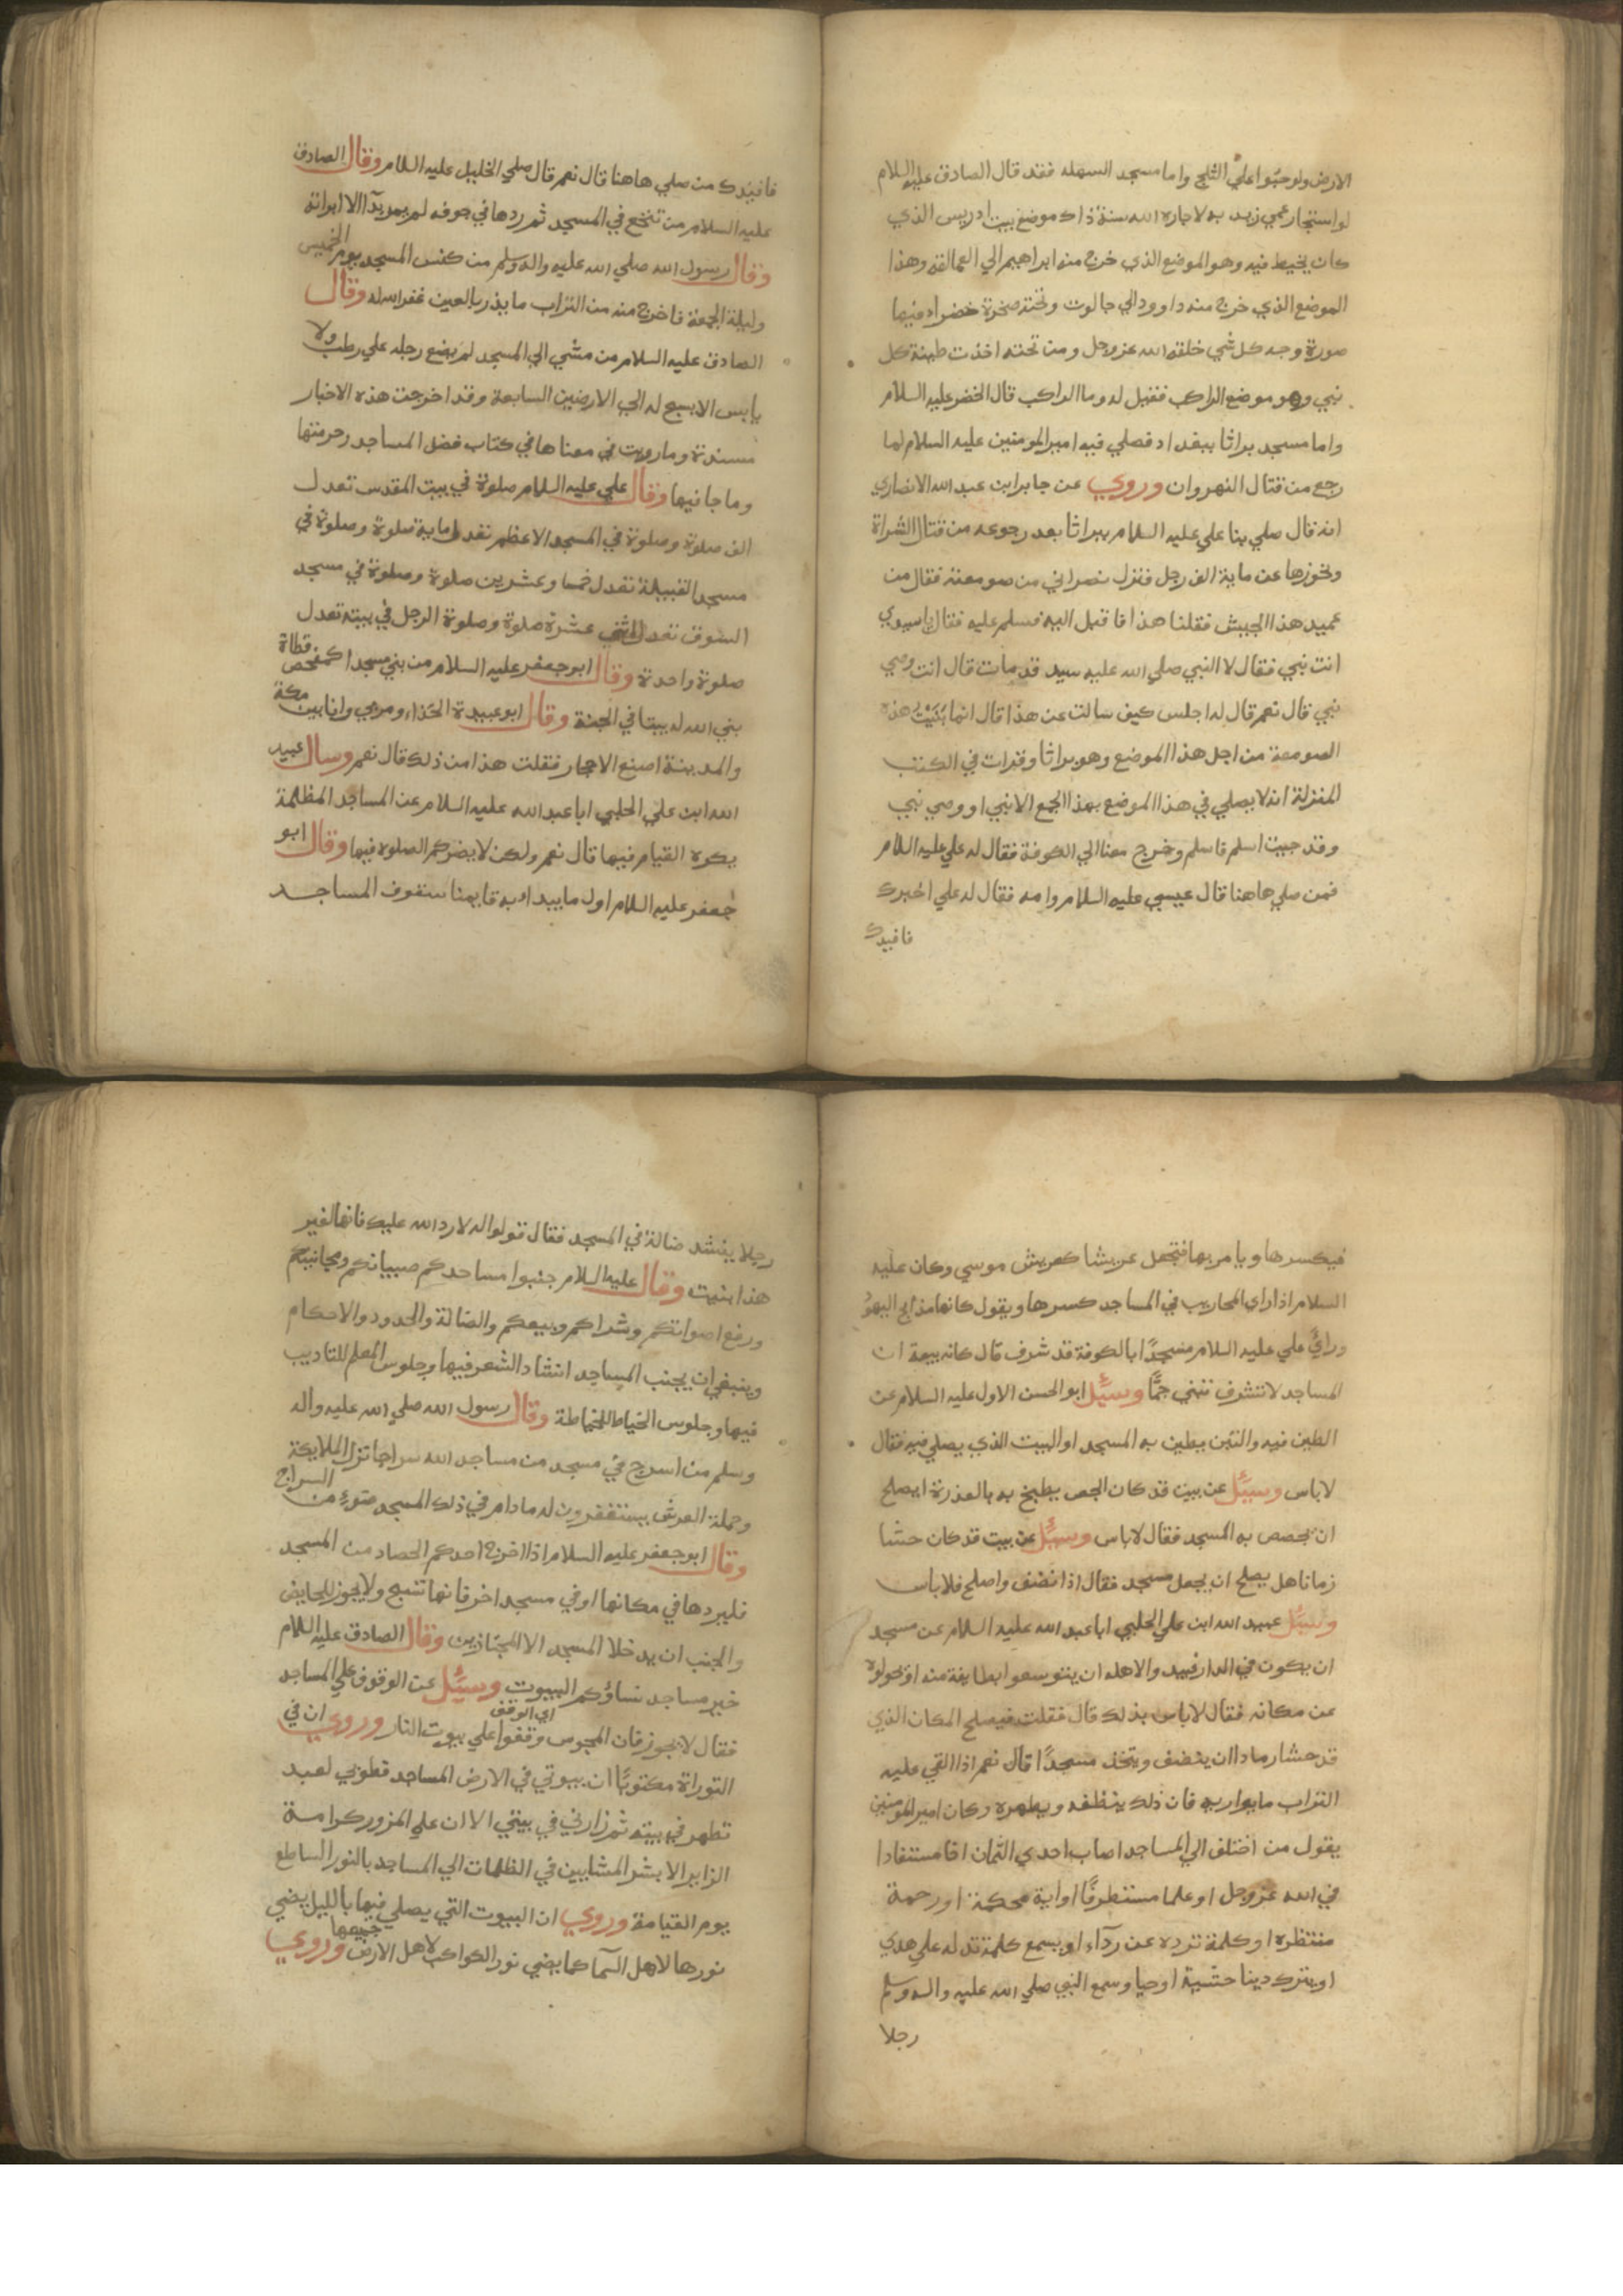 الارض ولو حبوا علي الثلج واما مسجد السهله فقد قال الصادق عليه السلام
لو استجار عمي زيد به لاجاره الله سنة ذاك موضع بيت ادريس الذي
كان يخيط فيه وهو الموضع الذي خرج منه ابراهيم الي العمالقة وهذا
الموضع الذي خرج منه داوود الي جالوت وتحته صخرة خضراء فيها
صورة وجه كل شي خلقه الله عز وجل ومن تحته اخذت طينة كل
نبي وهو موضع الراكب فقيل له وما الراكب قال الخضر عليه السلام
واما مسجد براثا ببغداد فصلي فيه امير المومنين عليه السلام لما
رجع من قتال النهروان وروي عن جابر ابن عبد الله الانصاري
انه قال صلي بنا علي عليه السلام ببراثا بعد رجوعه من قتال الشراة
ونحوزها عن ماية الف رجل فنزل نصراني من صومعته فقال من
عميد هذا الجيش فقلنا هذا فاقبل اليه فسلم عليه فقال يا سيدي
انت نبي فقال لا النبي صلي الله عليه سيد قد مات قال انت وصي
نبي قال نعم قال له اجلس كيف سالت عن هذا قال انما بَنَيْتُ هذه
الصومعة من اجل هذا الموضع وهو براثا وقرات في الكتب
المنزلة انه لا يصلي في هذا الموضع بهذا الجمع الا نبي او وصي نبي
وقد جيت اسلم فاسلم وخرج معنا الي الكوفة فقال له علي عليه السلام
فمن صلي هاهنا قال عيسي عليه السلام وامه فقال له علي اخبرك
فافيدك
فافيدك من صلي هاهنا قال نعم قال صلي الخليل عليه السلام وقال الصادق
عليه السلام من تنخع في المسجد ثم ردها في جوفه لم يمر بدآ الا ابراته
وقال رسول الله صلي الله عليه واله وسلم من كنس المسجد يوم الخميس
وليلة الجمعة فاخرج منه من التراب ما يذر بالعين غفر الله له وقال
الصادق عليه السلام من مشي الي المسجد لم يضع رجله علي رطب ولا
يابس الا يسبح له الي الارضين السابعة وقد اخرجت هذه الاخبار
مسندة وما رويت في معناها في كتاب فضل المساجد وحرمتها
وما جا فيها وقال علي عليه السلام صلوة في بيت المقدس تعدل
الف صلوة وصلوة في المسجد الاعظم تعدل ماية صلوة وصلوة في
مسجد القبيلة تعدل خمسا وعشرين صلوة وصلوة في مسجد
السوق تعدل اثني عشرة صلوة وصلوة الرجل في بيته تعدل
صلوة واحدة وقال ابو جعفر عليه السلام من بني مسجدا كمفحص قطاة
بني الله له بيتا في الجنة وقال ابو عبيدة الحذاء ومر بي وانا بين مكة
والمدينة اصنع الاحجار فقلت هذا من ذلك قال نعم وسال عبيد
الله ابن علي الحلبي ابا عبد الله عليه السلام عن المساجد المظللة
يكره القيام فيها قال نعم ولكن لا يضركم الصلوه فيها وقال ابو
جعفر عليه السلام اول ما يبداء به قايمنا سقوف المساجد
فيكسرها ويامر بها فتجعل عريشا كعريش موسي وكان عليه
السلام اذا راي المحاريب في المساجد كسرها ويقول كانها مذابح اليهود
ورائ علي عليه السلام مسجدًا بالكوفة قد شرف قال كانه بيعة ان
المساجد لا تشرف تبني جمًّا وسئل ابو الحسن الاول عليه السلام عن
الطين فيه والتبن يطين به المسجد او البيت الذي يصلي فيه فقال
لا باس وسئل عن بيت قد كان الجص يطبخ به بالعذرة ايصلح
ان يجصص به المسجد فقال لا باس وسئل عن بيت قد كان حشا
زمانا هل يصلح ان يجعل مسجد فقال اذا نضف واصلح فلا باس
وسئل عبيد الله ابن علي الحلبي ابا عبد الله عليه السلام عن مسجد
ان يكون في الدار فيبد والاهله ان يتوسعوا بطايفة منه او يحولوه
عن مكانه فقال لا باس بذلك قال فقلت فيصلح المكان الذي
قد حشا رمادا ان ينضف ويتخذ مسجدًا قال نعم اذا القي عليه
التراب ما يواريه فان ذلك ينظفه ويطهره وكان امير المومنين
يقول من اختلف الي المساجد اصاب احدي الثمان اخا مستفادا
في الله عز وجل او علما مستطرفًا او اية محكمة او رحمة
منتظره او كلمة ترده عن ردآء او يسمع كلمة تدله علي هدي
او يترك دينا خشية او حيا وسمع النبي صلي الله عليه واله وسلم
رجلا
رجلا ينشد ضالة في المسجد فقال قولوا له لا رد الله عليك فانها لغير
هذا بنيت وقال عليه السلام جنبوا مساجدكم صبيانكم ومجانينكم
ورفع اصواتكم وشراكم وبيعكم والضالة والحدود والاحكام
وينبغي ان يجنب المساجد انشاد الشعر فيها وجلوس المعلم للتاديب
فيها وجلوس الخياط للخياطة وقال رسول الله صلي الله عليه واله
وسلم من اسرج في مسجد من مساجد الله سراجا تزل الملايكة
وحملة العرش يستغفرون له مادام في ذلك المسجد ضوء من السراج
وقال ابو جعفر عليه السلام اذا اخرج احدكم الحصاد من المسجد
فليردها في مكانها او في مسجد اخر فانها تسبح ولا يجوز للحايض
والجنب ان يدخلا المسجد الا المجتازين وقال الصادق عليه السلام
خير مساجد نساؤكم البيوت وسئل عن الوقوف علي المساجد
اي الوقف
فقال لا يجوز فان المجوس وقفوا علي بيوت النار وروي ان في
التوراة مكتوبًا ان بيوتي في الارض المساجد فطوبي لعبد
تطهر في بيته ثم زارني في بيتي الا ان علي المزور كرامة
الزاير الا بشر المشايين في الظلمات الي المساجد بالنور الساطع
يوم القيامة وروي ان البيوت التي يصلي فيها بالليل يضي
نورها لاهل السمآ كما يضي نور الكواكب لاهل الارض جميعها وروي